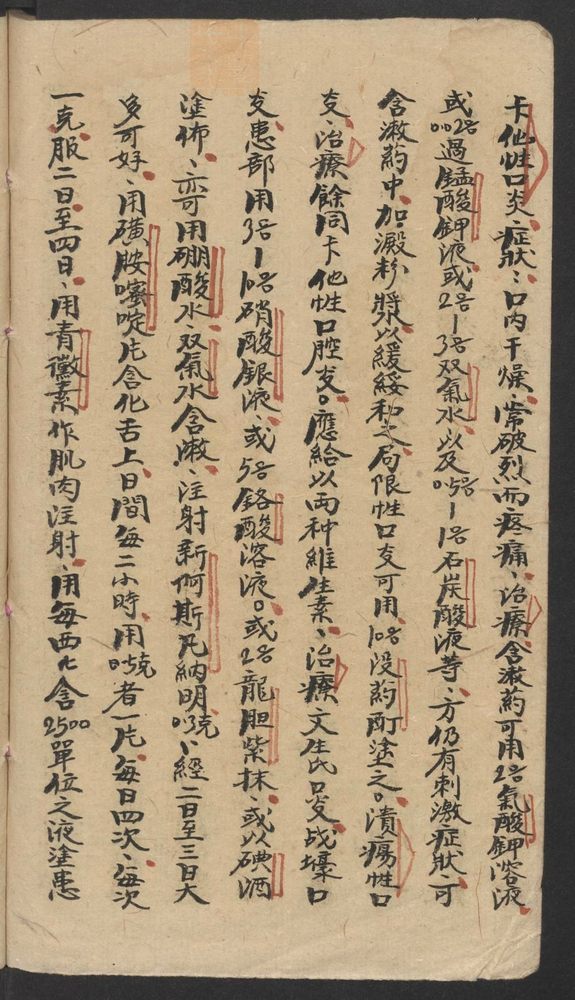 卡他性口炎、症狀：口内干燥、常破烈而疼痛、治療含漱葯可用2%氯酸鉀溶液
或0.02%過錳酸鉀液或2%—3%双氣水、以及0.5%—1%石炭酸液等、方仍有刺激症狀、可
含漱葯中、加澱粉漿以緩綏和之、局限性口炎可用10%没葯酊塗之。潰瘍性口
炎、治療餘同卡他性口腔炎。應給以两种維生素、治療文生氏口炎战壕口
炎患部用3%—10%硝酸銀液、或5%鉻酸溶液。或2%龍胆紫抹、或以碘酒
塗佈、亦可用硼酸水、双氣水含漱、注射新阿斯凡納明0.3克、經二日至三日大
多可好、用磺胺嘧啶片含化舌上、日間每二小時、用0.5克者一片、每日四次、每次
一克、服二日至四日、用青黴素作肌肉注射、用每西西含2500單位之液塗患